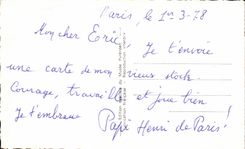 Paris, le 1er 3-78
Mon cher Eric, Je t'envoie
une carte de mon vieux stock.
Courage, travaille et joue bien
Je t'embrasse Papé Henri de Paris!